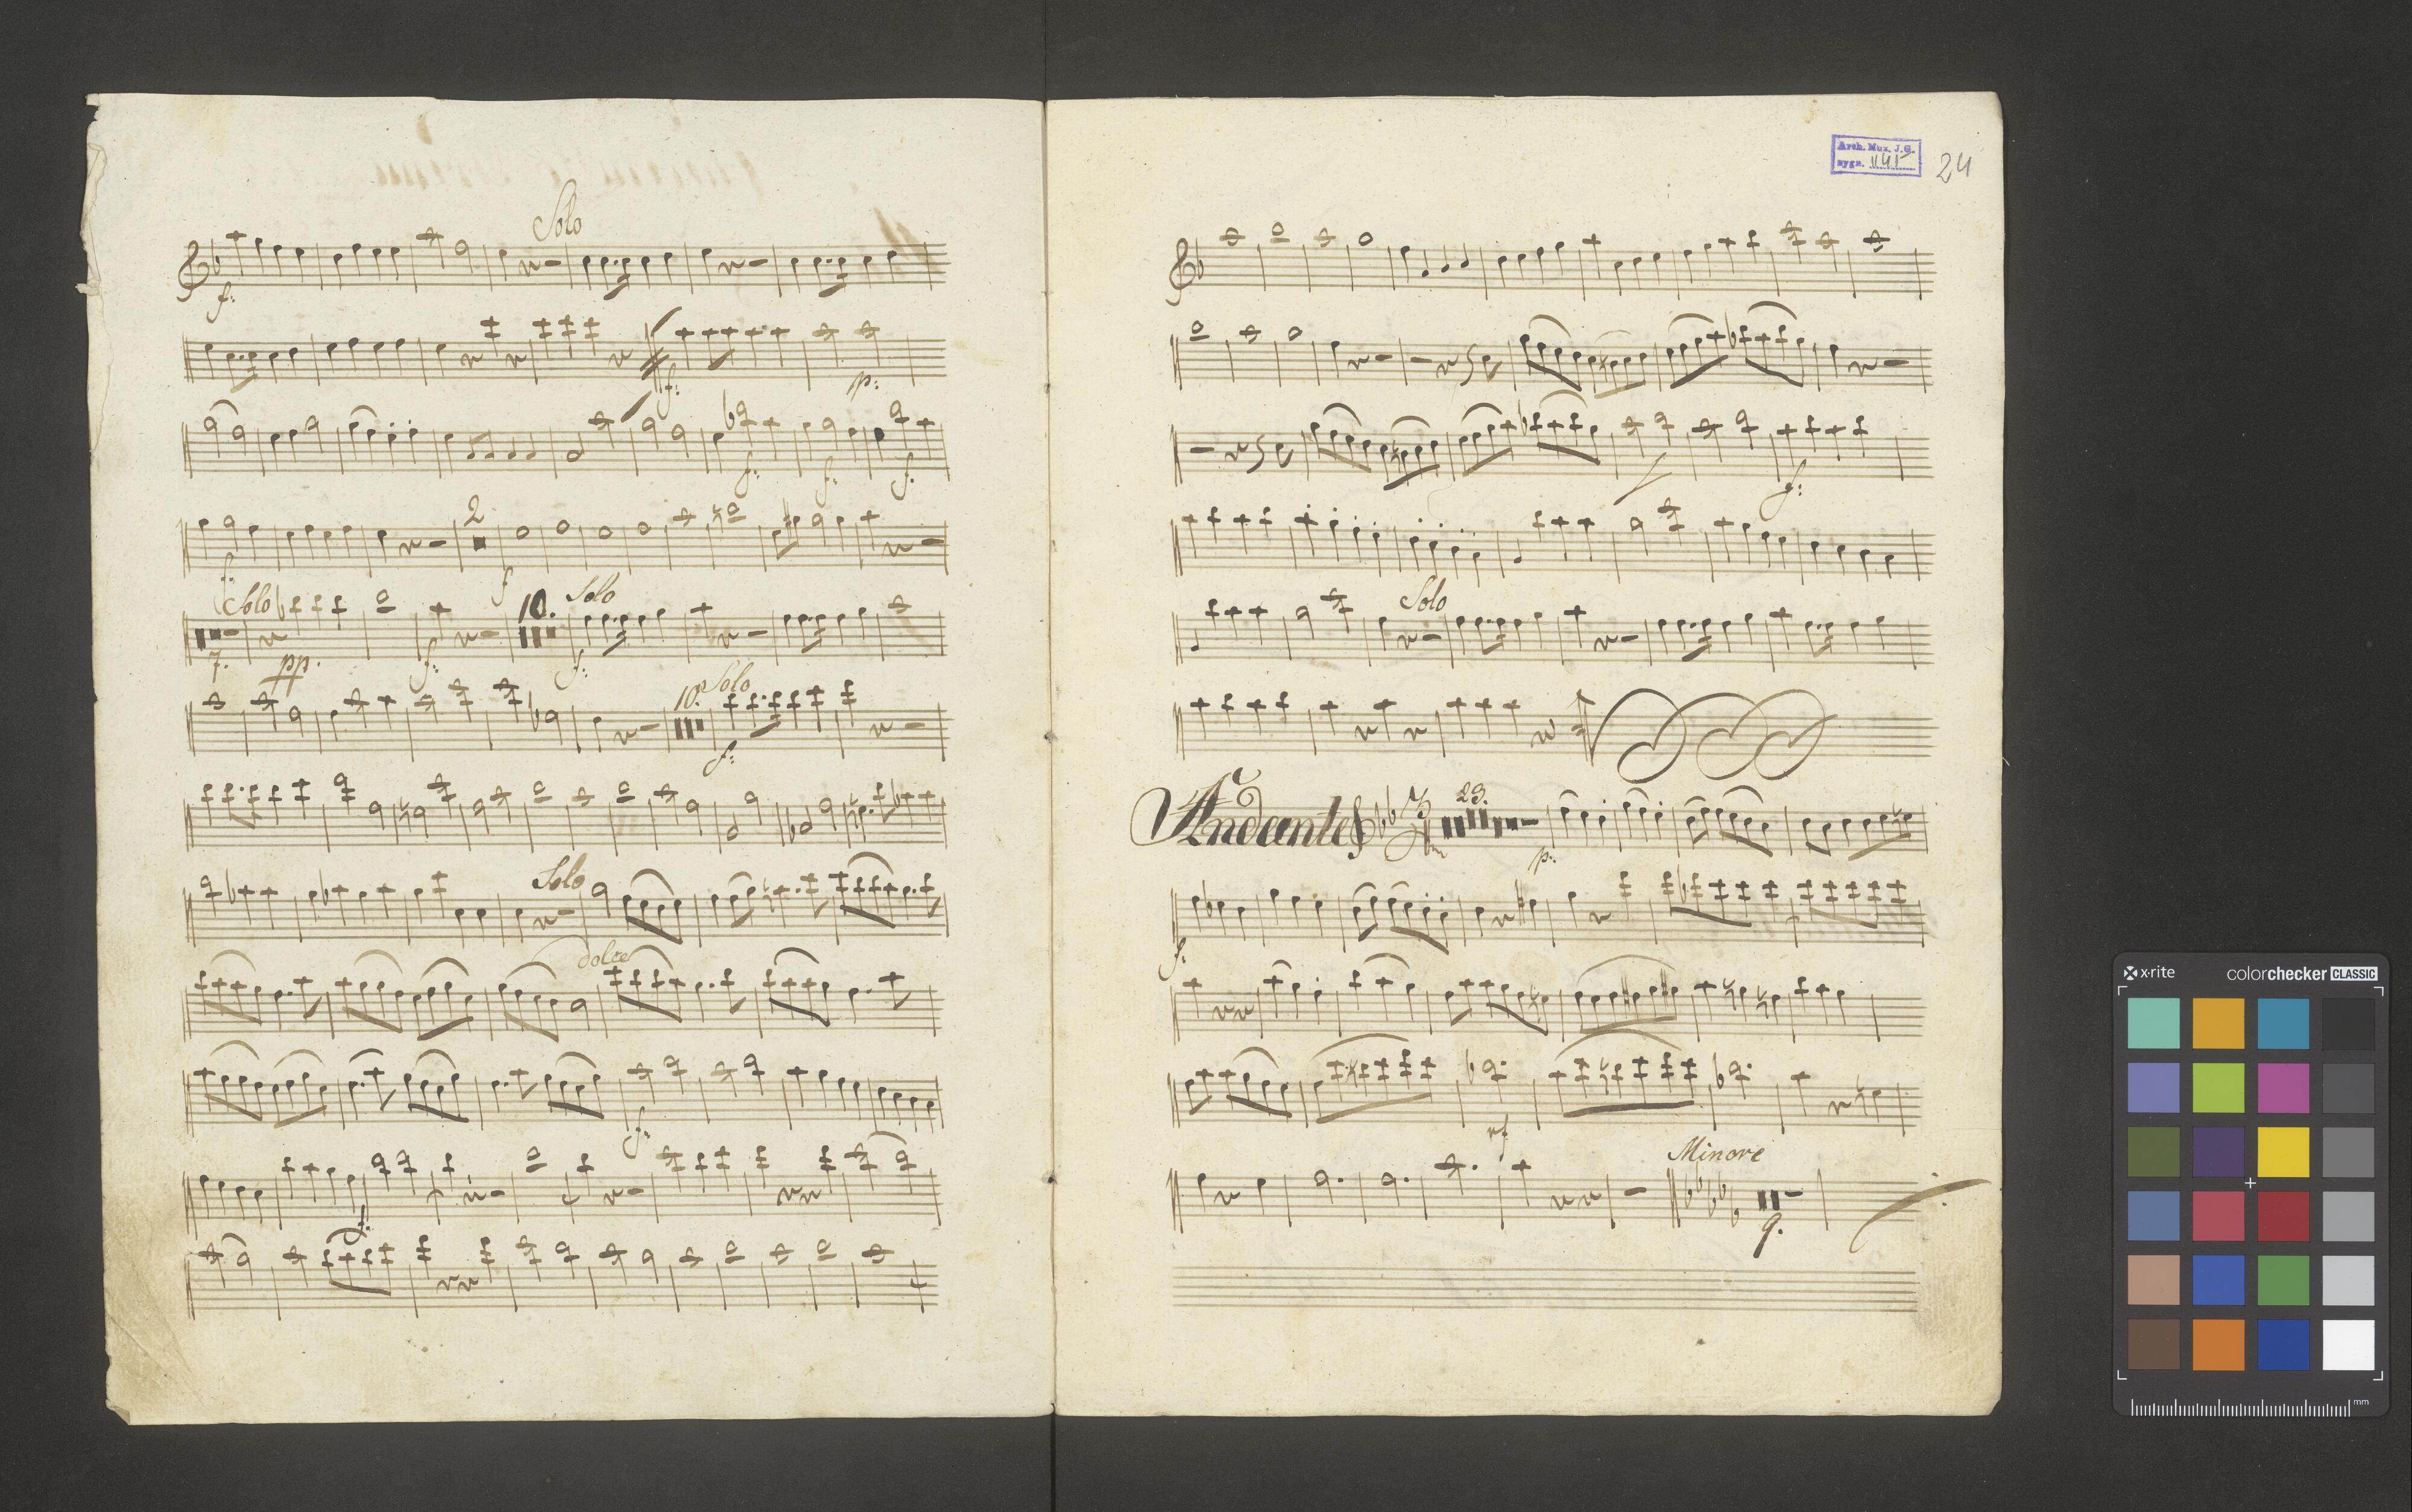 Solo
f:
f: p:
f: f. f.
2
f: f
Solo 10. Solo
7. pp. f: f:
10. Solo
f:
Solo
dolce
f:
f:
Arch. Muz. J.G.
sygn. 24
f:
Solo
Andante 23.
p:
f:
Minore
9.
x·rite colorchecker CLASSIC
mm